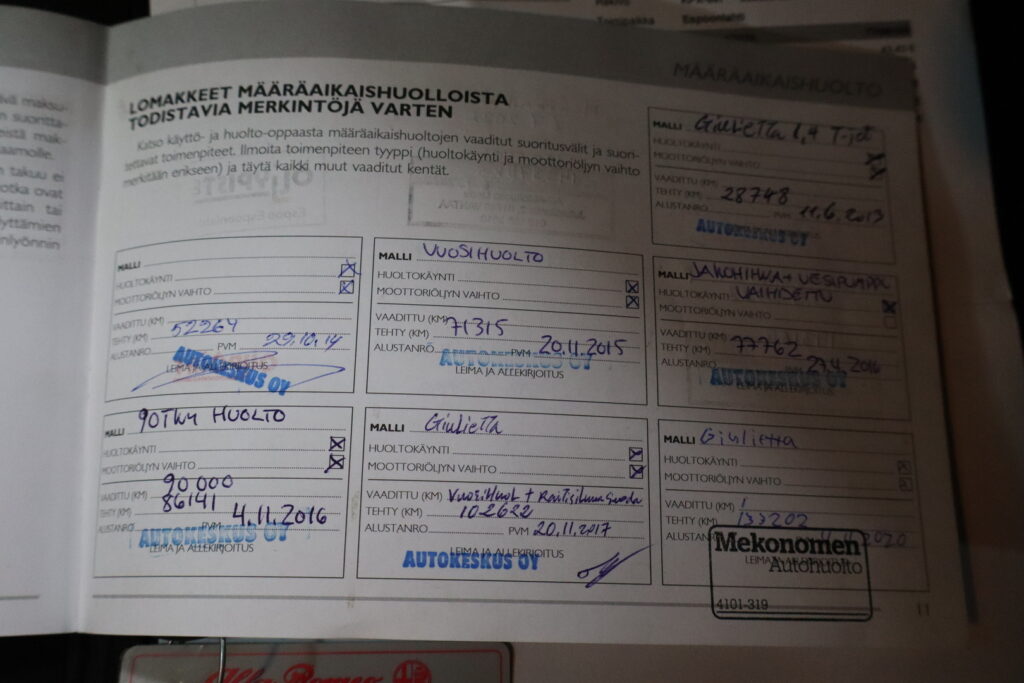 MÄÄRÄAIKAISHUOLTO
LOMAKKEET MÄÄRÄAIKAISHUOLLOISTA
TODISTAVIA MERKINTÖJÄ VARTEN
Katso käyttö- ja huolto-oppaasta määräaikaishuoltojen vaaditut suoritusvälit ja suori-
tettavat toimenpiteet. Ilmoita toimenpiteen tyyppi (huoltokäynti ja moottoriöljyn vaihto
merkitään erikseen) ja täytä kaikki muut vaaditut kentät.
MALLI Giulietta 1,4 T-jet
HUOLTOKÄYNTI
MOOTTORIÖLJYN VAIHTO
VAADITTU (KM)
TEHTY (KM) 28748
ALUSTANRO PVM 11.6.2013
AUTOKESKUS OY
MALLI
HUOLTOKÄYNTI
MOOTTORIÖLJYN VAIHTO
VAADITTU (KM)
TEHTY (KM) 52264
ALUSTANRO PVM 29.10.14
AUTOKESKUS OY
LEIMA JA ALLEKIRJOITUS
MALLI VUOSIHUOLTO
HUOLTOKÄYNTI
MOOTTORIÖLJYN VAIHTO
VAADITTU (KM)
TEHTY (KM) 71315
ALUSTANRO PVM 20.11.2015
AUTOKESKUS OY
LEIMA JA ALLEKIRJOITUS
MALLI JAKOHIHNA + VESIPUMPPU
HUOLTOKÄYNTI VAIHDETTU
MOOTTORIÖLJYN VAIHTO
VAADITTU (KM)
TEHTY (KM) 77762
ALUSTANRO
AUTOKESKUS OY
MALLI 90TKM HUOLTO
HUOLTOKÄYNTI
MOOTTORIÖLJYN VAIHTO
VAADITTU (KM) 90 000
TEHTY (KM) 86141
ALUSTANRO PVM 4.11.2016
AUTOKESKUS OY
LEIMA JA ALLEKIRJOITUS
MALLI Giulietta
HUOLTOKÄYNTI
MOOTTORIÖLJYN VAIHTO
VAADITTU (KM) Vuosihuol +
TEHTY (KM) 102622
ALUSTANRO PVM 20.11.2017
AUTOKESKUS OY
LEIMA JA ALLEKIRJOITUS
MALLI Giulietta
HUOLTOKÄYNTI
MOOTTORIÖLJYN VAIHTO
VAADITTU (KM)
TEHTY (KM) 133202
ALUSTANRO 2020
Mekonomen
LEIMA JA ALLEKIRJOITUS
Autohuolto
4101-319
11
Alfa Romeo